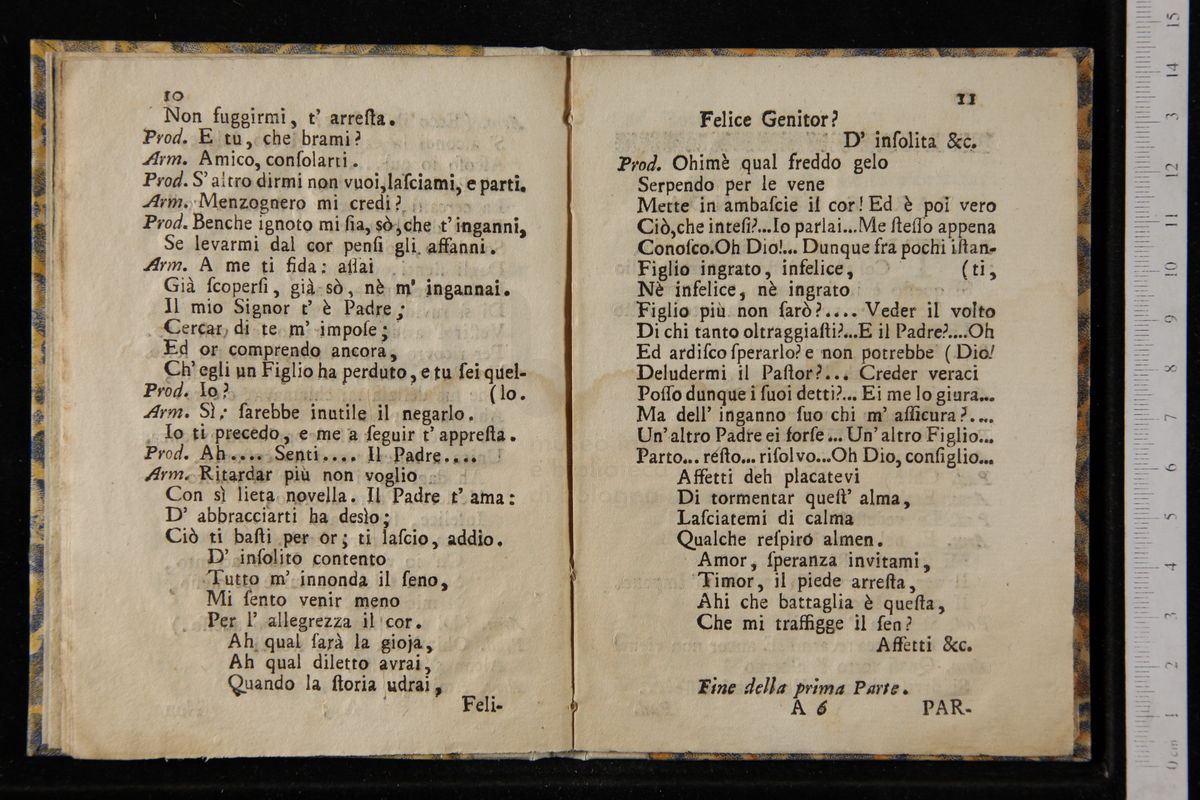 10
Non fuggirmi, t' arreſta.
Prod. E tu, che brami?
Arm. Amico, conſolarti.
Prod. S' altro dirmi non vuoi, laſciami, e parti.
Arm. Menzognero mi credi?
Prod. Benche ignoto mi ſia, sò, che t' inganni,
Se levarmi dal cor penſi gli affanni.
Arm. A me ti fida: aſſai
Già ſcoperſi, già sò, nè m' ingannai.
Il mio Signor t' è Padre;
Cercar di te m' impoſe;
Ed or comprendo ancora,
Ch' egli un Figlio ha perduto, e tu ſei quel-
Prod. Io? (lo.
Arm. Sì; ſarebbe inutile il negarlo.
Io ti precedo, e me a ſeguir t' appreſta.
Prod. Ah.... Senti.... Il Padre....
Arm. Ritardar più non voglio
Con sì lieta novella. Il Padre t' ama:
D' abbracciarti ha desìo;
Ciò ti baſti per or; ti laſcio, addio.
D' inſolito contento
Tutto m' innonda il ſeno,
Mi ſento venir meno
Per l' allegrezza il cor.
Ah qual ſarà la gioja,
Ah qual diletto avrai,
Quando la ſtoria udrai,
Feli-
11
Felice Genitor?
D' inſolita &c.
Prod. Ohimè qual freddo gelo
Serpendo per le vene
Mette in ambaſcie il cor! Ed è poi vero
Ciò, che inteſi?...Io parlai...Me ſteſſo appena
Conoſco.Oh Dio!... Dunque fra pochi iſtan-
Figlio ingrato, infelice, (ti,
Nè infelice, nè ingrato
Figlio più non ſarò?.... Veder il volto
Di chi tanto oltraggiaſti?...E il Padre?....Oh
Ed ardiſco ſperarlo? e non potrebbe (Dio!
Deludermi il Paſtor?... Creder veraci
Poſſo dunque i ſuoi detti?... Ei me lo giura...
Ma dell' inganno ſuo chi m' aſſicura?....
Un' altro Padre ei forſe... Un' altro Figlio...
Parto... reſto... riſolvo...Oh Dio, conſiglio...
Affetti deh placatevi
Di tormentar queſt' alma,
Laſciatemi di calma
Qualche reſpiro almen.
Amor, ſperanza invitami,
Timor, il piede arreſta,
Ahi che battaglia è queſta,
Che mi traffigge il ſen?
Affetti &c.
Fine della prima Parte.
A 6 PAR-
0 cm 1 2 3 4 5 6 7 8 9 10 11 12 3 14 15